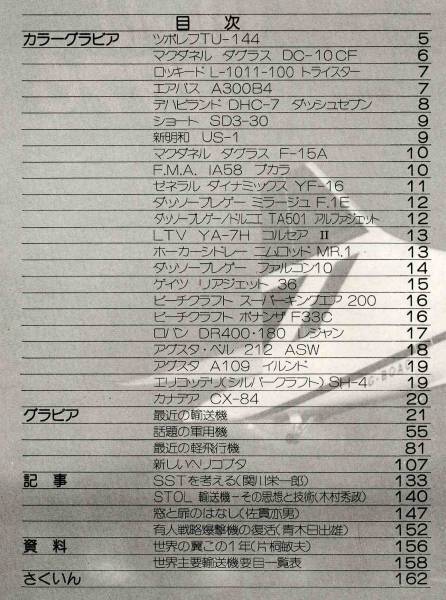 目 次
カラーグラビア ツポレフTU-144 5
マクダネル ダグラス DC-10CF 6
ロッキード L-1011-100 トライスター 7
エアバス A300B4 7
デハビランド DHC-7 ダッシュセブン 8
ショート SD3-30 9
新明和 US-1 9
マクダネル ダグラス F-15A 10
F.M.A. IA58 プカラ 10
ゼネラル ダイナミックス YF-16 11
ダッソーブレゲー ミラージュ F.1E 12
ダッソーブレゲー/ドルニエ TA501 アルファジェット 12
LTV YA-7H コルセア Ⅱ 13
ホーカーシドレー ニムロッド MR.1 13
ダッソーブレゲー ファルコン10 14
ゲイツ リアジェット 36 15
ビーチクラフト スーパーキングエア 200 16
ビーチクラフト ボナンザ F33C 16
ロバン DR400・180 レジャン 17
アグスタ・ベル 212 ASW 18
アグスタ A109 イルンド 19
エリコッテリ(シルバークラフト) SH-4 19
カナデア CX-84 20
グラビア 最近の輸送機 21
話題の軍用機 55
最近の軽飛行機 81
新しいヘリコプタ 107
記 事 SSTを考える(関川栄一郎) 133
STOL 輸送機-その思想と技術(木村秀政) 140
窓と扉のはなし(佐貫亦男) 147
有人戦略爆撃機の復活(青木日出雄) 152
資 料 世界の翼この1年(片桐敏夫) 156
世界主要輸送機要目一覧表 158
さくいん 162
G-BOA